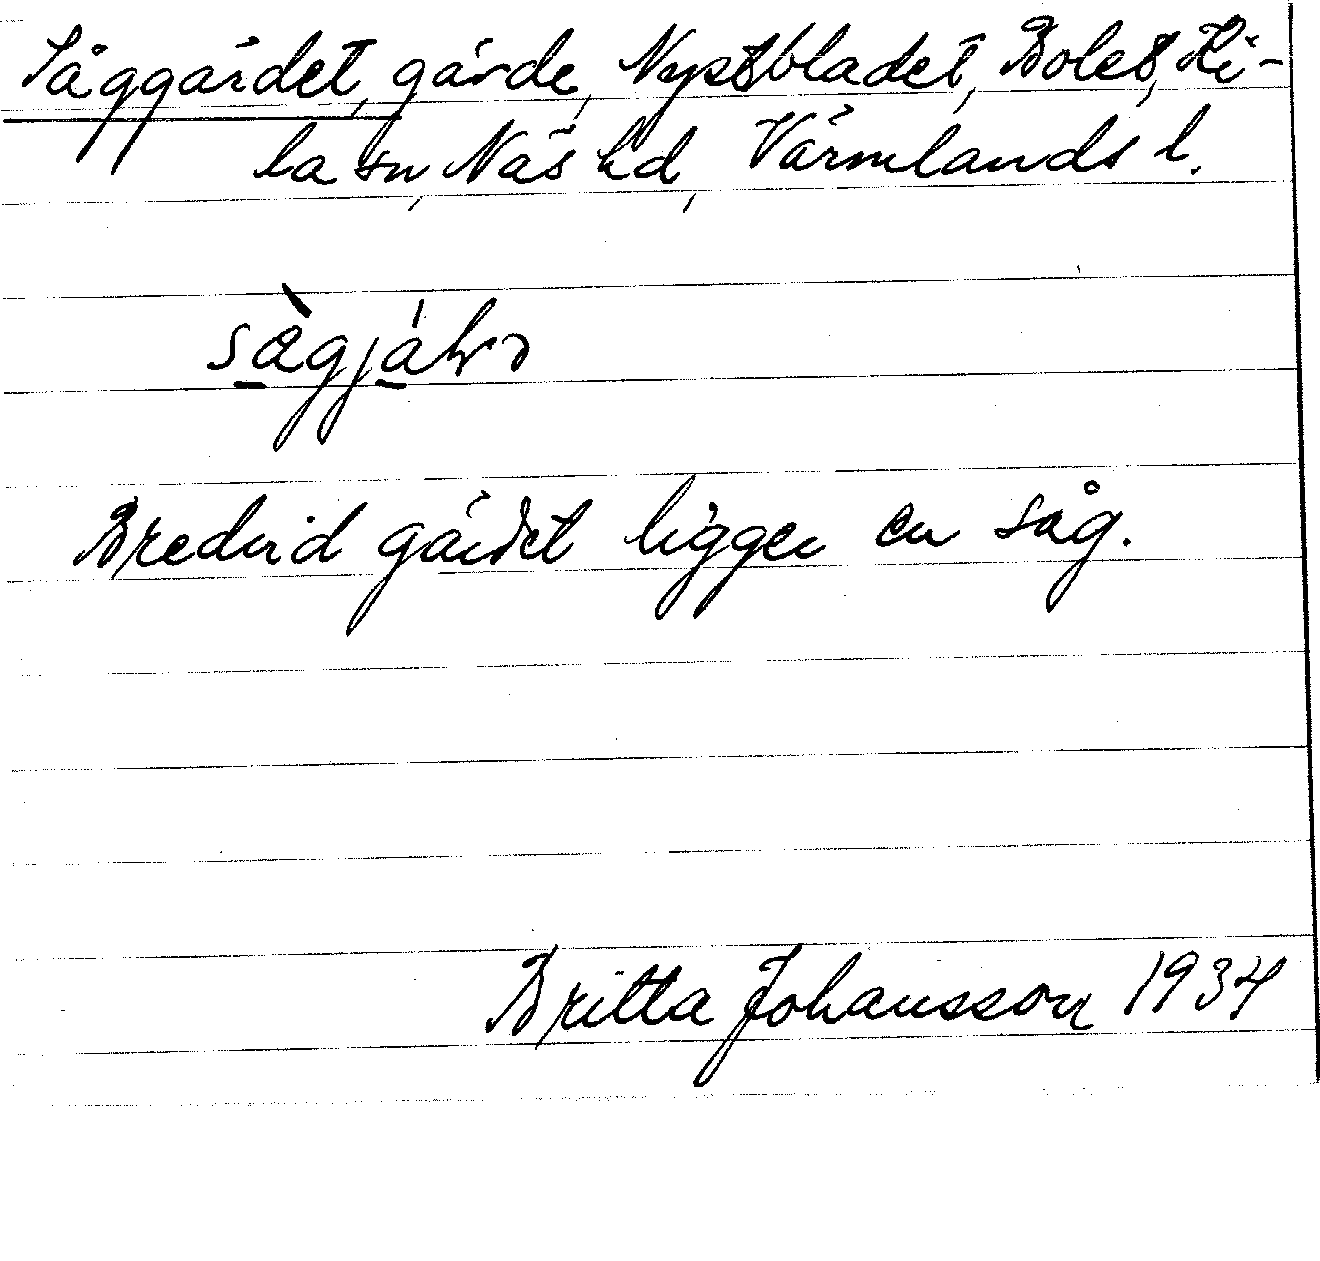 Såggärdet, gärde, Nystbladet, Bolet, Ki-
la sn, Näs hd, Värmlands l.
Bredvid gärdet ligger en såg.
Britta Johansson 1934